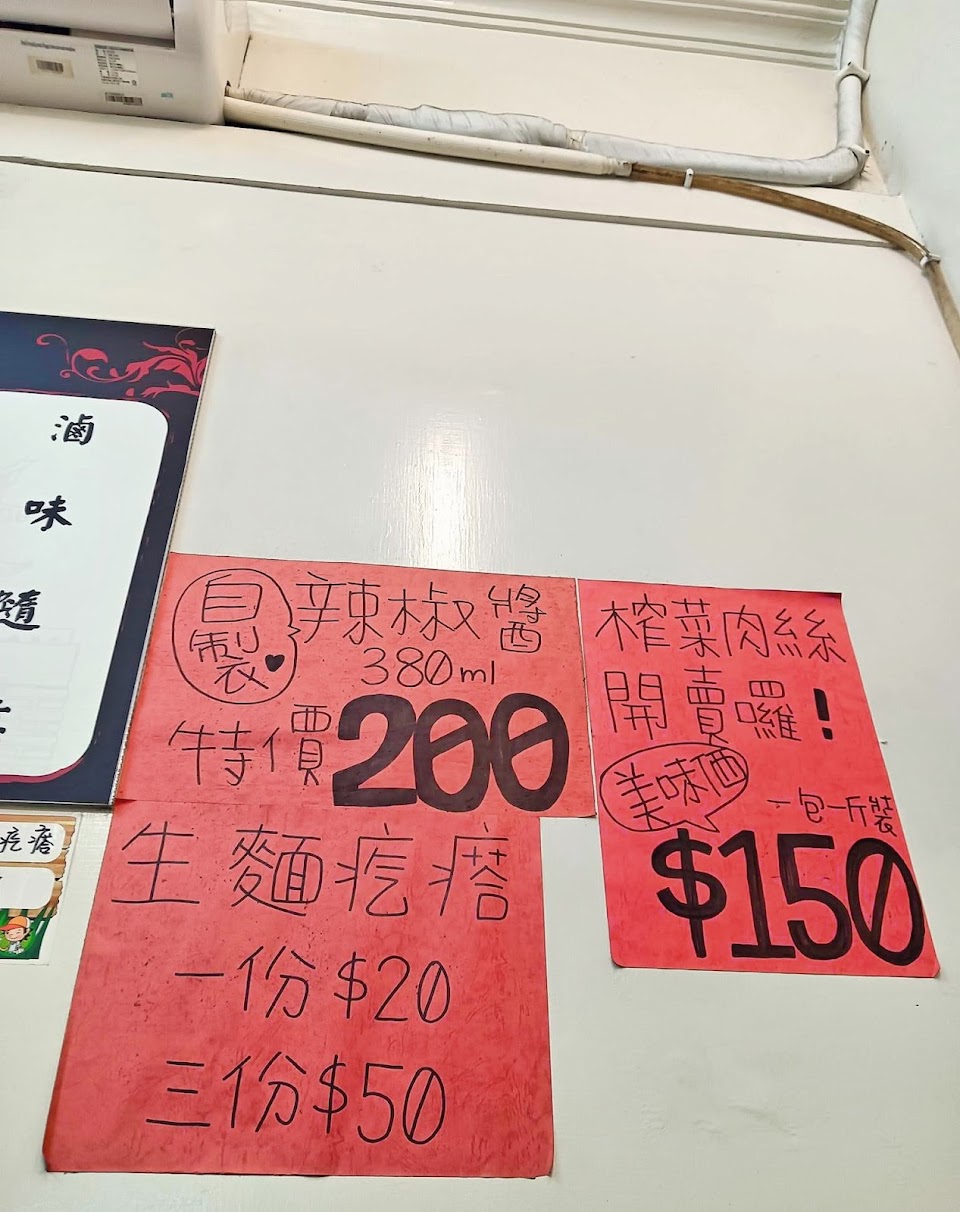 滷
味
隨
自製
辣椒醬
380ml
特價200
生麵疙瘩
一份$20
三份$50
榨菜肉絲
開賣囉!
美味価
一包一斤裝
$150
疙瘩